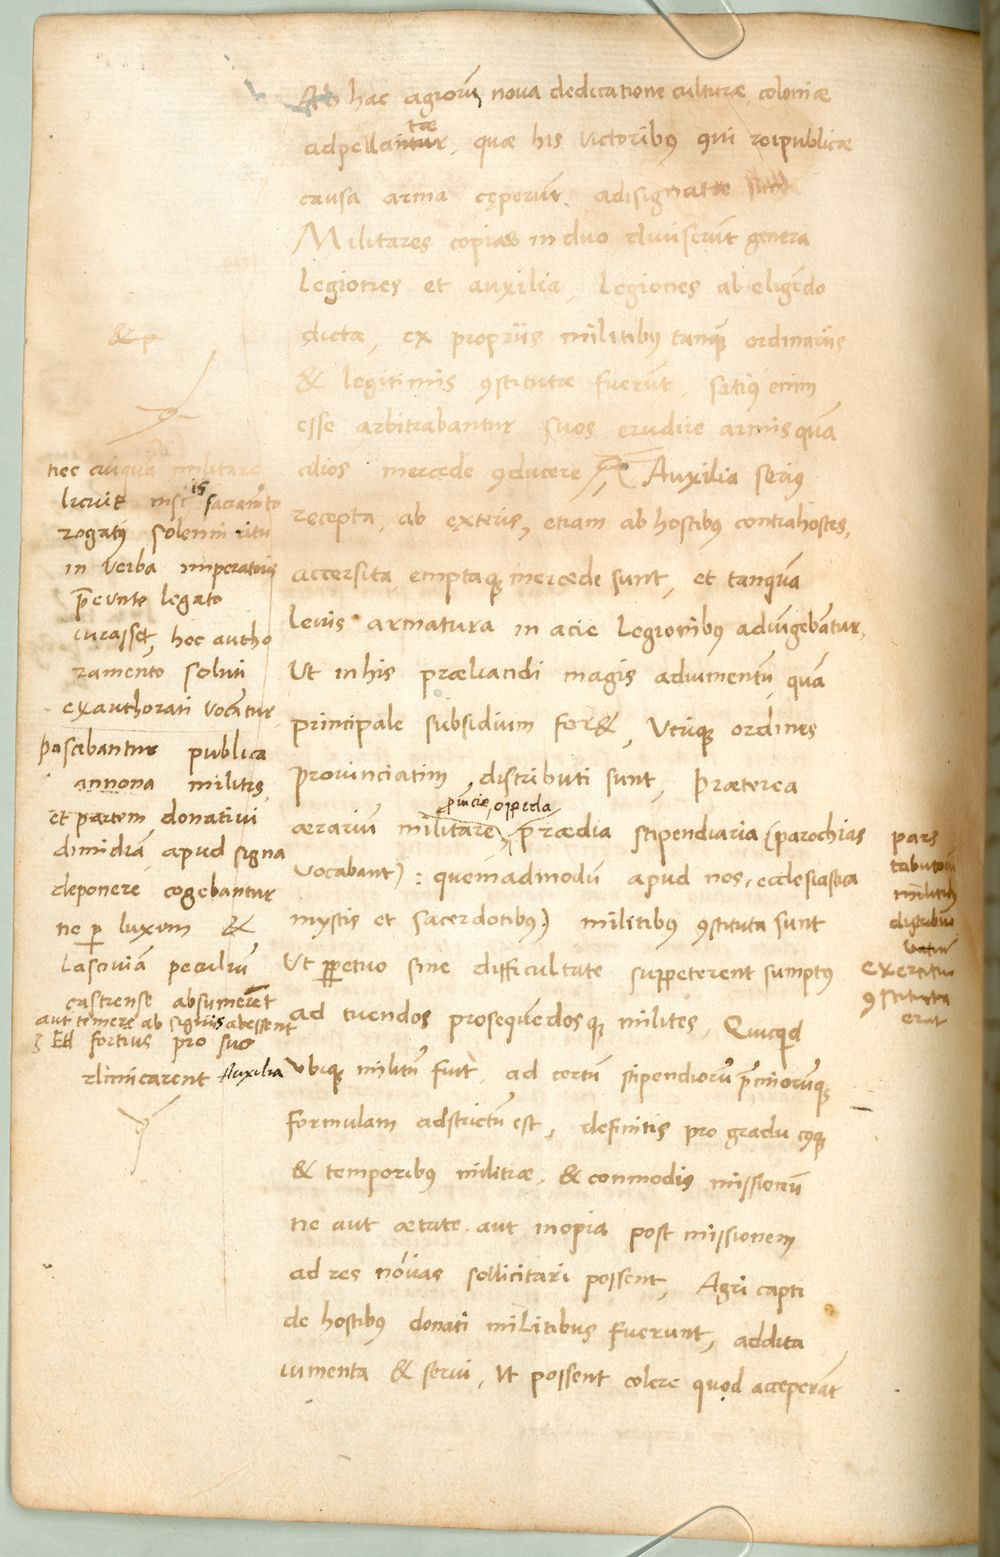 Ab hac agrorū nova dedicatione culturæ, coloniæ
adpellatæ, quæ his victoribꝰ qui reipublicæ
causa arma cęperūt adsignatæ sunt
Militares copias in duo diuiserūt genera
Legiones et auxilia, Legiones ab eligēdo
dictæ, ex propriis militibꝰ tanqꝫ ordinariis
& legitimis ꝯstitutæ fuerūt, satiꝰ enim
esse arbitrabantur suos erudire armis quā
alios mercede ꝯducere Auxilia seriꝰ
recepta, ab exteris, etiam ab hostibꝰ contra hostes,
accersita emptaqꝫ mercede sunt, et tanquā
leuis armatura in acie legionibꝰ adiūgebātur,
Ut in his præliandi magis adiumentū quā
principale subsidium for&, Utriqꝫ ordines
prouinciatim distributi sunt, Præterea
aerariū militare, prædia stipendiaria (parochias
vocabant) : quemadmodū apud nos, ecclesiastica
mystis et sacerdotibꝰ) militibꝰ ꝯstituta sunt
Ut ꝑpetuo sine difficultate suppeterent sumptꝰ
ad tuendos prosequēdosqꝫ milites, Quicqd
ubiqꝫ militū fuit, ad certū stipendiorū p̄miorūqꝫ
formulam adstrictū est, definitis pro gradu cuiꝰqꝫ
& temporibꝰ militiæ, & commodis missionū
ne aut ætate aut inopia post missionem
ad res nouas sollicitari possent, Agri capti
de hostibꝰ donati militibus fuerunt, addita
iumenta & serui, ut possent colere quod acceperāt
& p
nec cuiquā militare
licuit nisi is sacramēto
rogatꝰ solenni ritu
in verba imperatoris
p̄eunte legato
iurasset, hoc autho
ramento soluti
exauthorati vocātur
Pascebantur publica
annona milites,
et partem donatiui
dimidiā apud signa
deponere cogebantur
ne ꝑ luxum &
lasciuiā peculiū
castrense absumerēt
aut temere ab signis abessent
Sed fortius pro suo
dimicarent Auxilia
pars
tributorū
militibꝰ
distribu
exercitui
ꝯstituta
erat